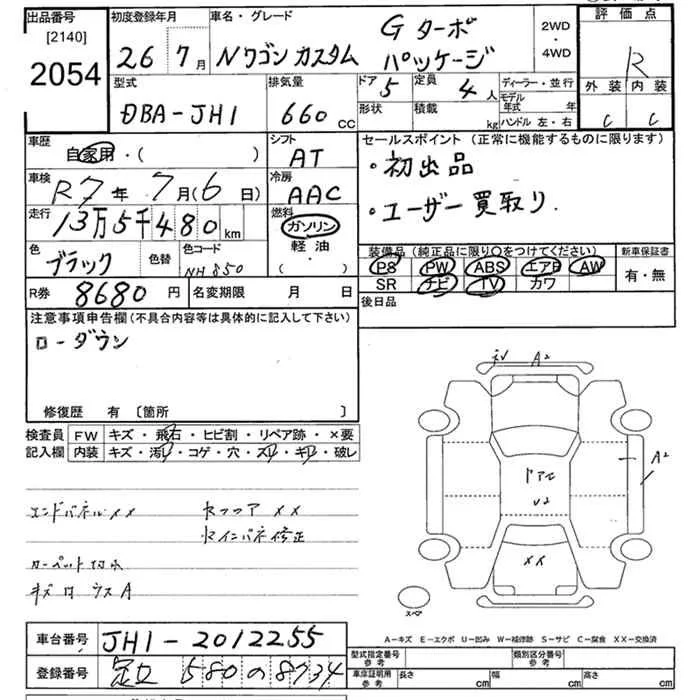 出品番号
[2140]
2054
初度登録年月
26 7月
車名・グレード
Nワゴン カスタム
G ターボ
パッケージ
2WD
・
4WD
評価点
R
外装 内装
C C
型式
DBA-JH1
排気量
660 cc
ドア
5
定員
4人
形状
積載
kg
ディーラー・並行
モデル年式 年
ハンドル 左・右
車歴
自家用・( )
シフト
AT
セールスポイント (正常に機能するものに限ります)
・初出品
・ユーザー買取り
車検
R7年 7月(6日)
冷房
AAC
走行
13万5千480km
燃料
ガソリン
軽油
( ・ )
色
ブラック
色替
色コード
NH850
装備品 (純正品に限り○をつけてください)
PS PW ABS エアB AW
SR ナビ TV カワ
新車保証書
有・無
R券
8680円
名変期限 月 日
後日品
注意事項申告欄(不具合内容等は具体的に記入して下さい)
ローダウン
修復歴 有 〔箇所 〕
検査員
記入欄
FW キズ・飛石・ヒビ割・リペア跡・×要
内装 キズ・汚れ・コゲ・穴・スレ・キレ・破レ
エンドパネルXX
カーペット
A2
A2
XX
スペア
A－キズ E－エクボ U－凹み W－補修跡 S－サビ C－腐食 XX－交換済
車台番号
JH1-2012255
登録番号
足立 580 の 8734
型式指定番号
参考
類別区分番号
参考
車庫証明用
参考
長さ cm
幅 cm
高さ cm